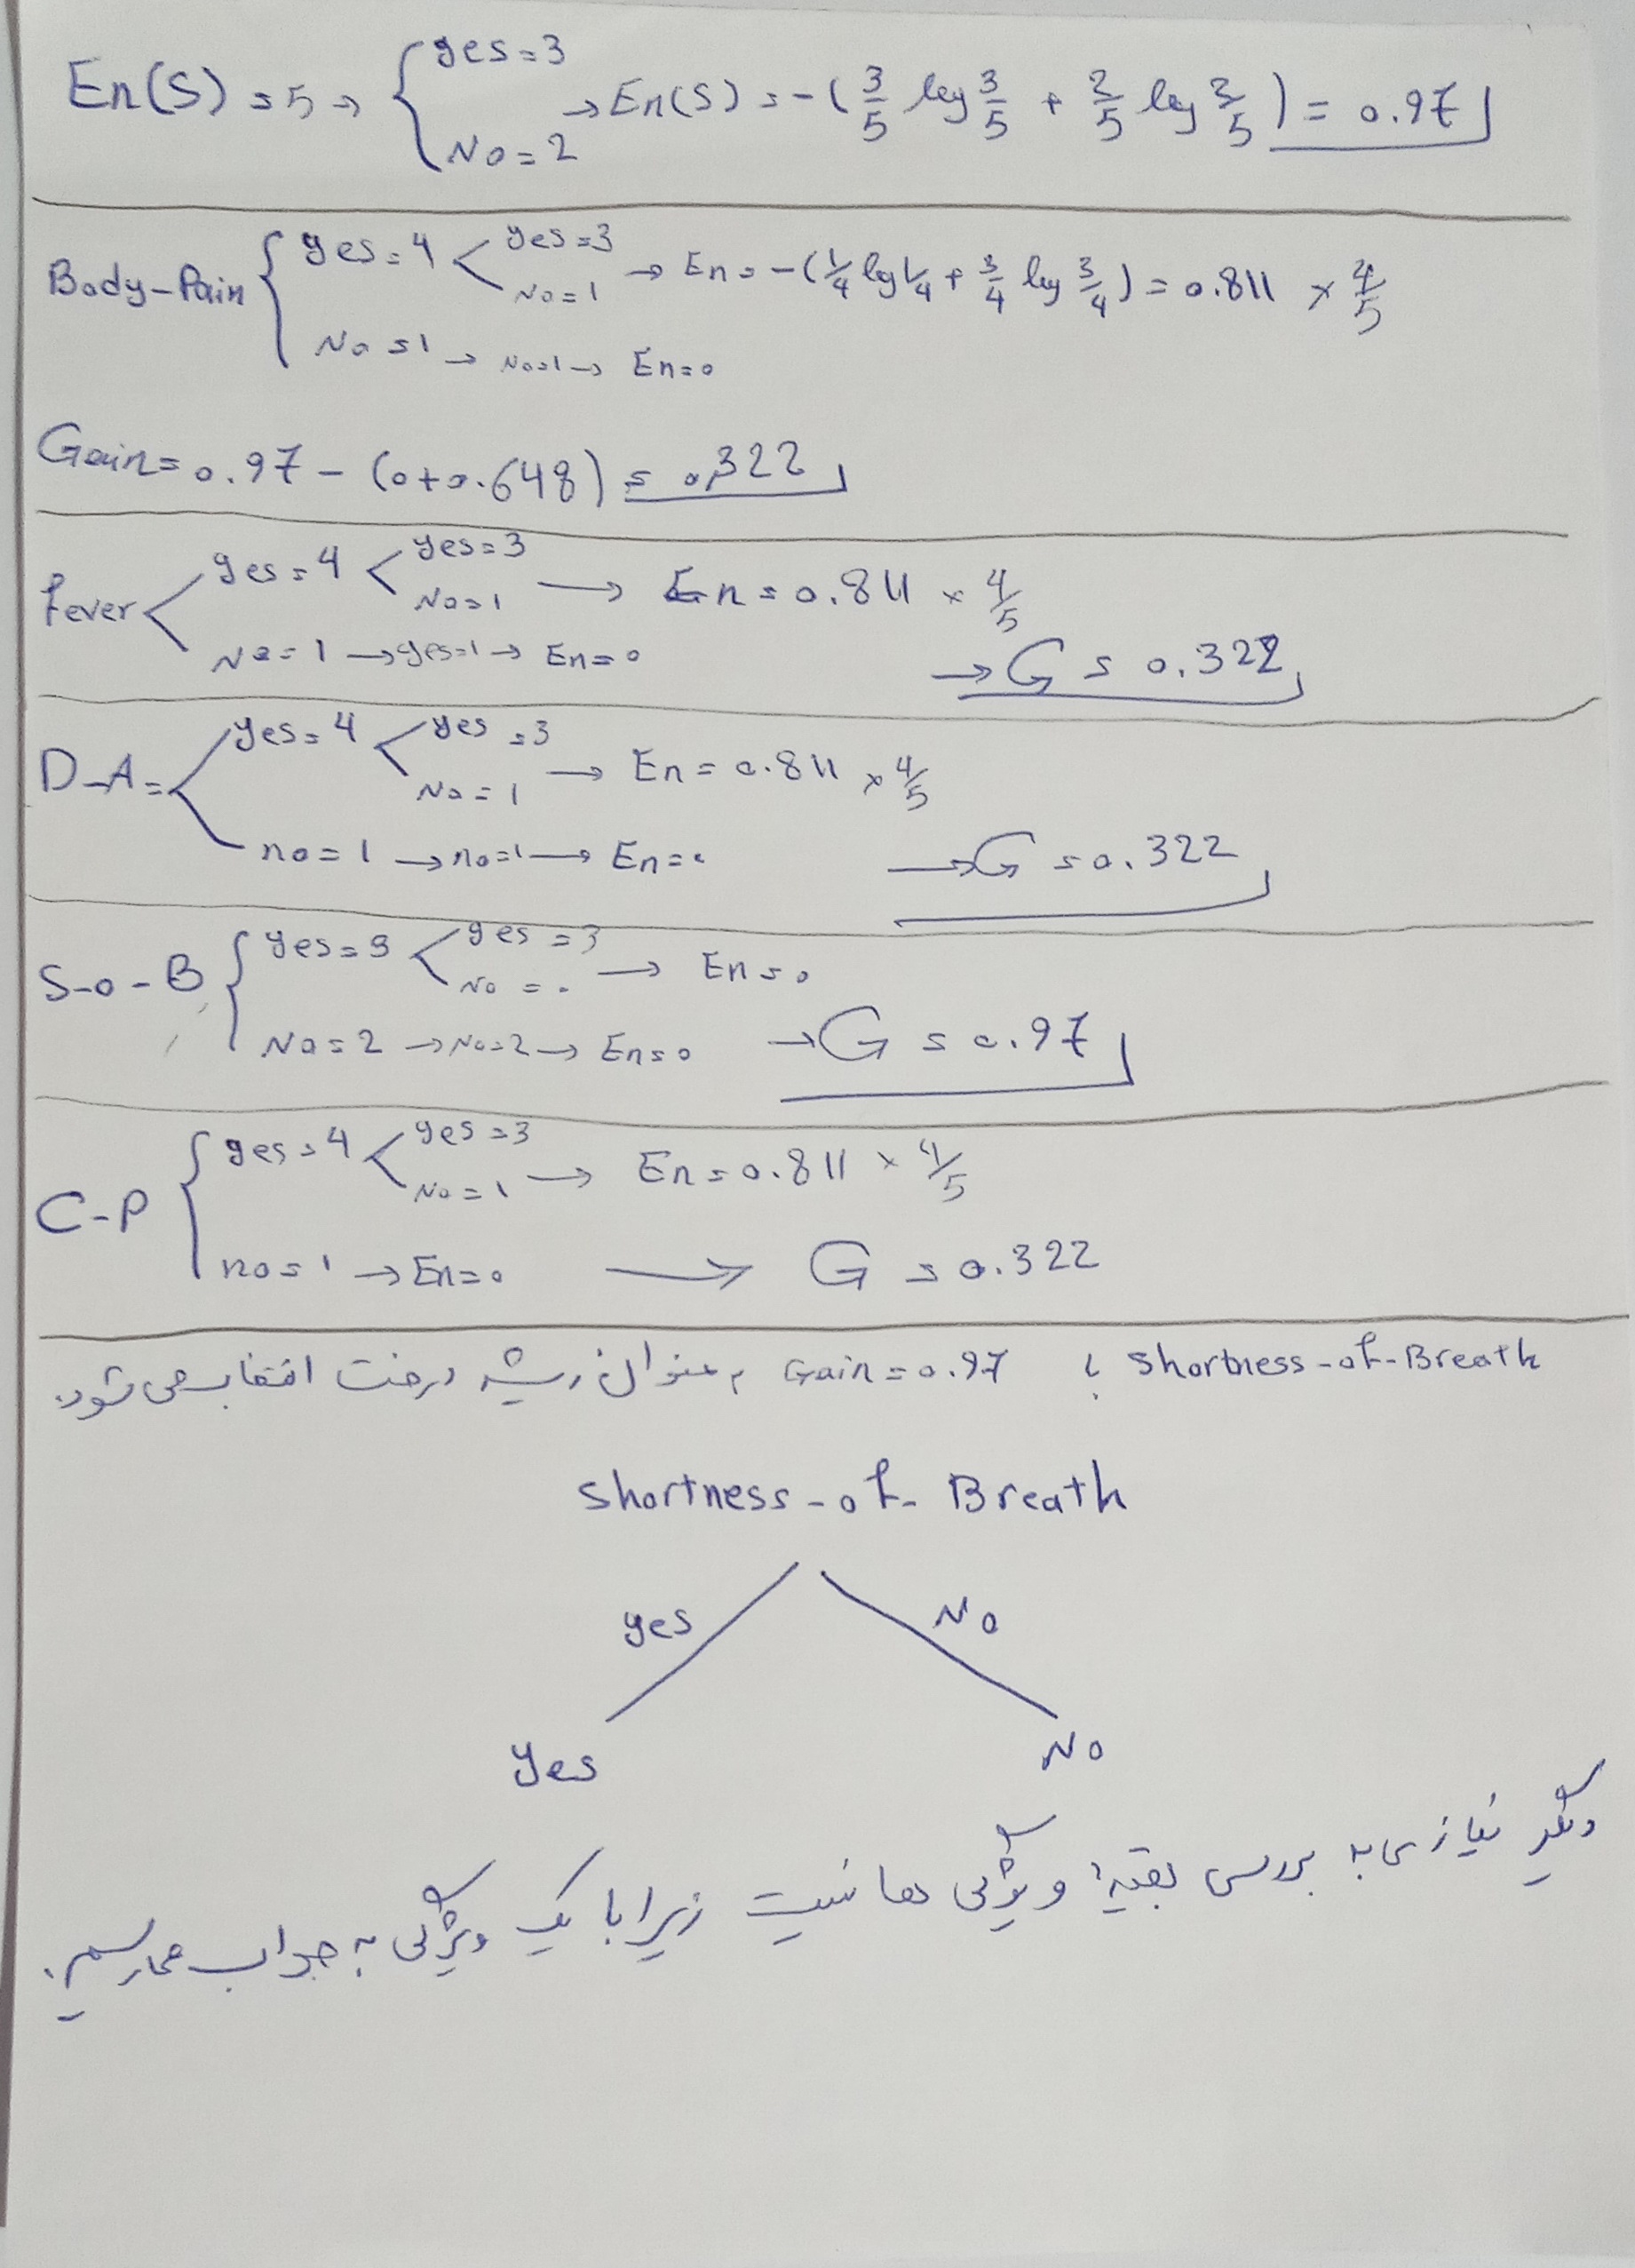 En(S) = 5 → { yes = 3 No = 2 → En(S) = -(3/5 log 3/5 + 2/5 log 2/5) = 0.97
Body-Pain { yes = 4 < yes = 3 No = 1 → En = -(1/4 log 1/4 + 3/4 log 3/4) = 0.811 × 4/5
No = 1 → No=1 → En = 0
Gain = 0.97 - (0+0.648) = 0,322
fever < yes = 4 < yes = 3 No = 1 → En = 0.811 × 4/5
No = 1 → yes=1 → En = 0 → G = 0.322
D-A = < yes = 4 < yes = 3 No = 1 → En = 0.811 × 4/5
no = 1 → no=1 → En = 0 → G = 0.322
S-o-B { yes = 3 < yes = 3 No = 0 → En = 0
No = 2 → No=2 → En = 0 → G = 0.97
C-P { yes = 4 < yes = 3 No = 1 → En = 0.811 × 4/5
no = 1 → En = 0 → G = 0.322
Shortness-of-Breath با Gain = 0.97 به عنوان ریشه درخت انتخاب می شود.
Shortness-of-Breath
yes No
Yes No
دیگر نیازی به بررسی بقیه ویژگی ها نیست زیرا با یک ویژگی به جواب می رسیم.